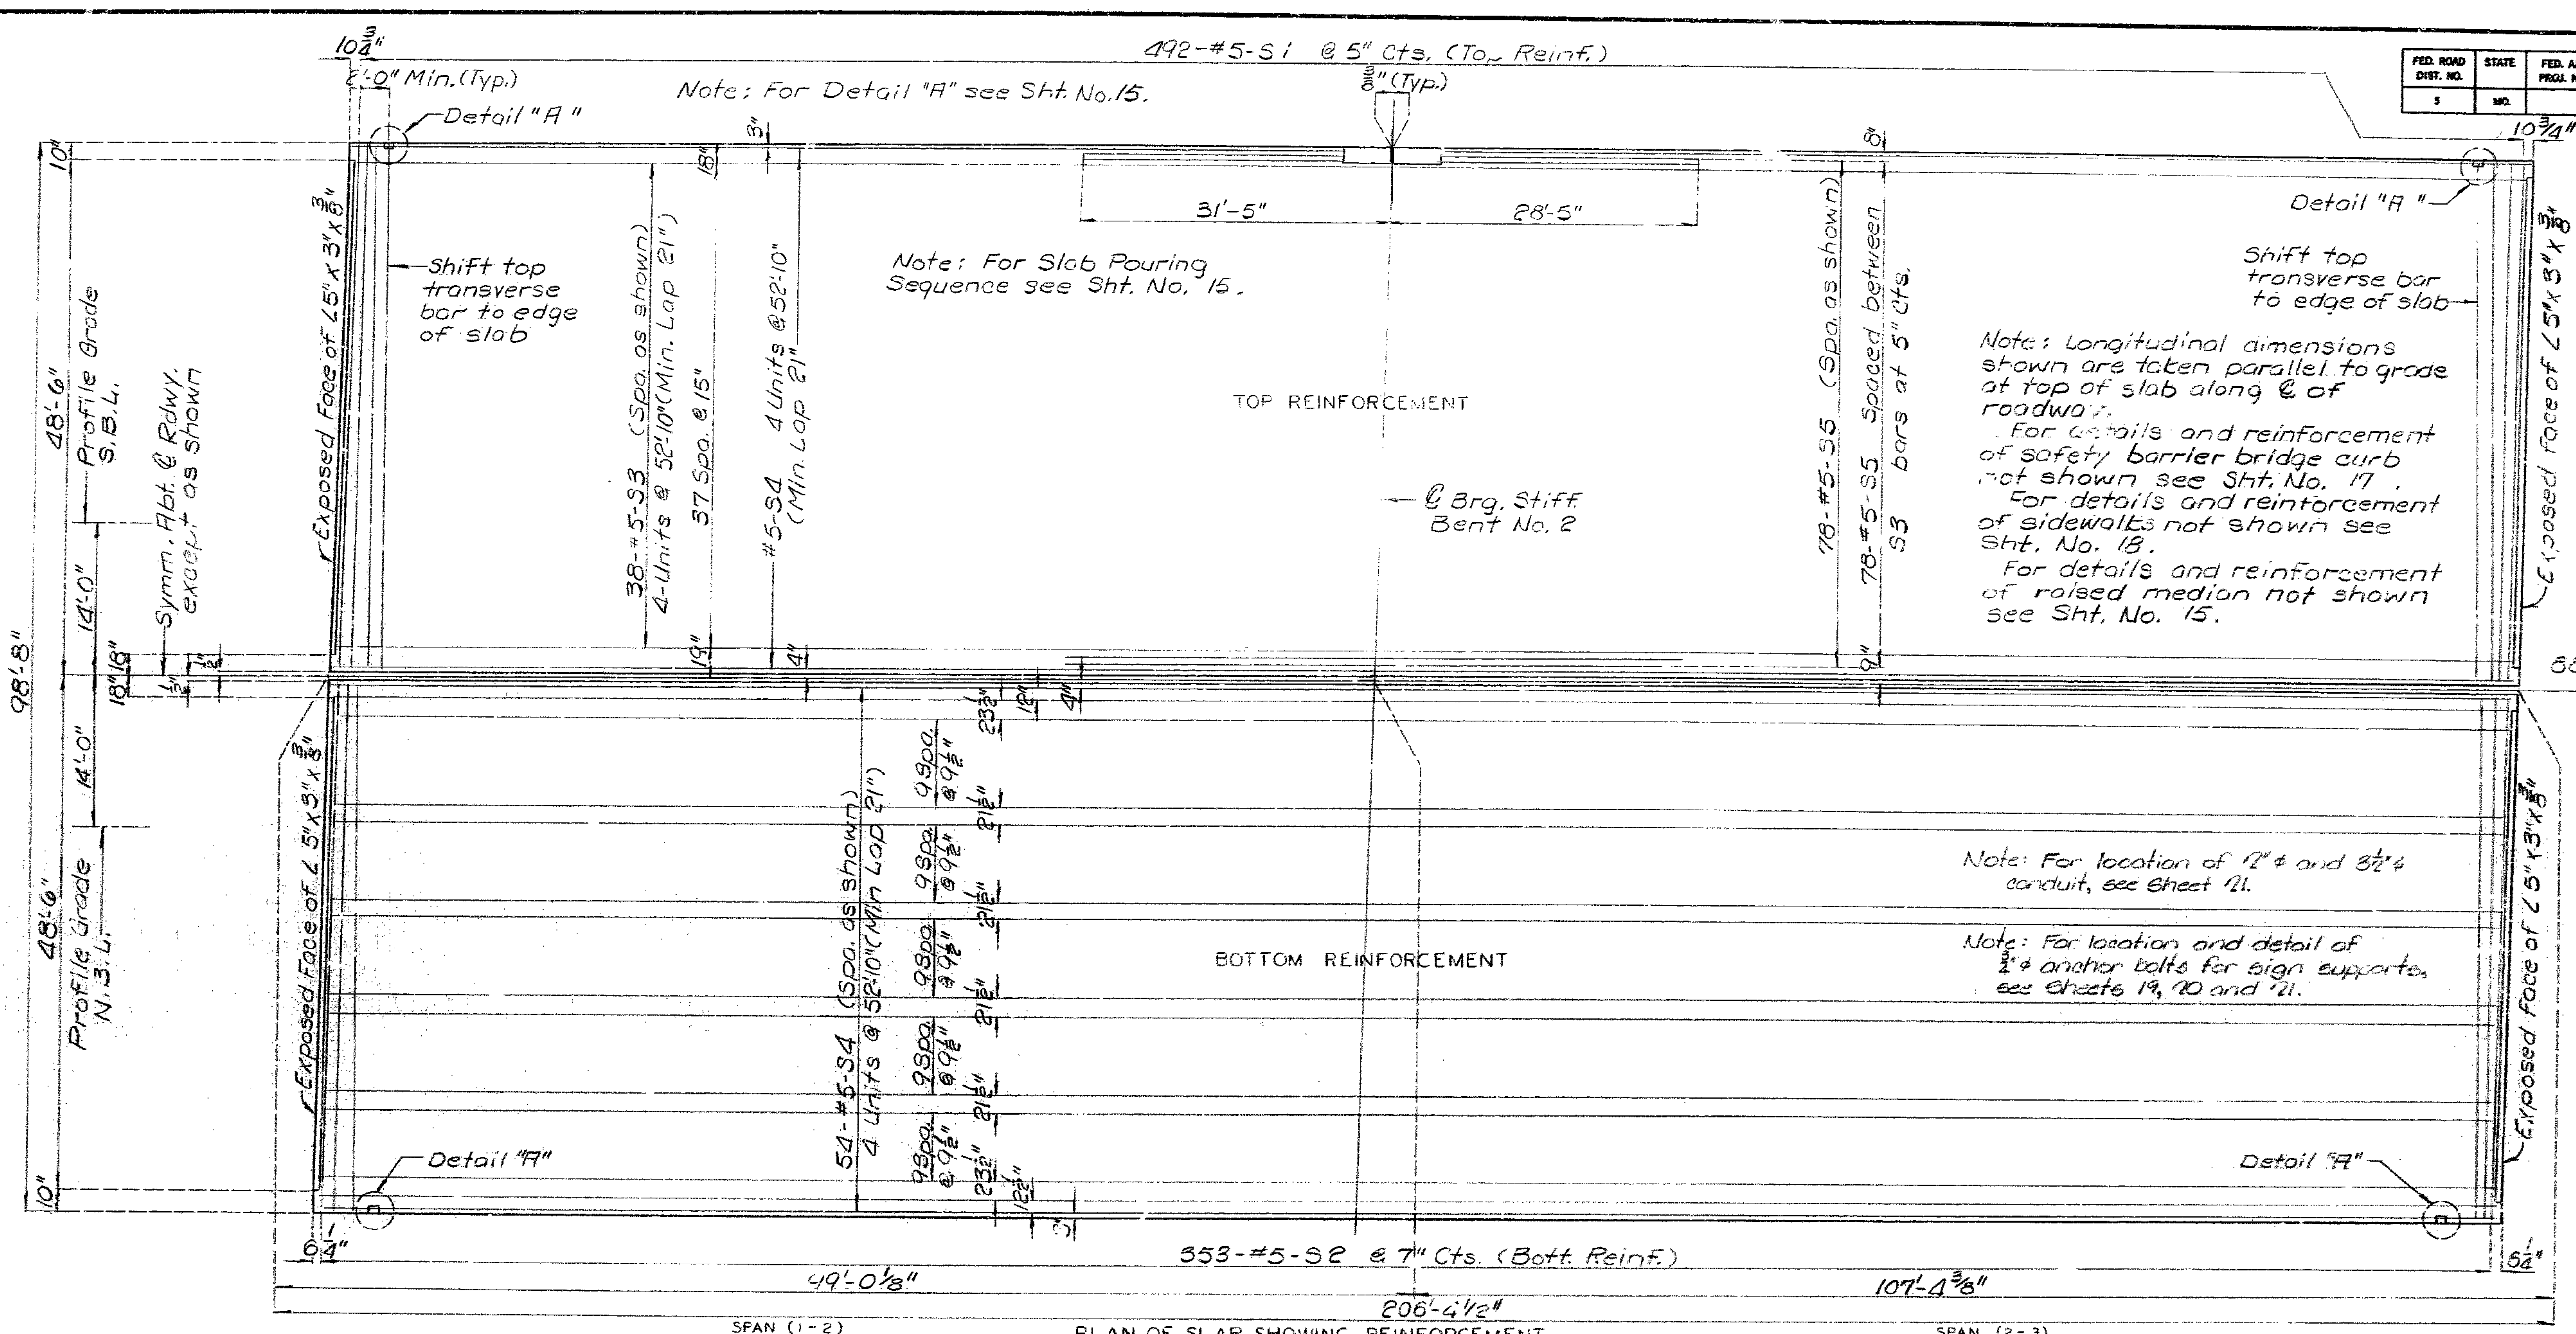 10 3/4"
492-#5-S1 @ 5" Cts. (Top Reinf.)
2'-0" Min.(Typ.)
Note: For Detail "A" see Sht. No. 15.
3/8" (Typ.)
FED. ROAD DIST. NO.
STATE
5
MO.
10 3/4"
Detail "A"
10"
3"
18"
8"
31'-5"
28'-5"
Detail "A"
Exposed Face of L5"x3"x3/8"
Shift top
transverse
bar to edge
of slab
38-#5-S3 (Spa. as shown)
4-Units @ 52'-10" (Min. Lap 21")
37 Spa. @ 15"
#5-S4 4 Units @ 52'-10"
(Min. Lap 21")
Note: For Slab Pouring
Sequence see Sht. No. 15.
TOP REINFORCEMENT
℄ Brg. Stiff.
Bent No. 2
78-#5-S5 (Spa. as shown)
78-#5-S5 Spaced between
S3 bars at 5" Cts.
Shift top
transverse bar
to edge of slab
Note: Longitudinal dimensions
shown are taken parallel to grade
at top of slab along ℄ of
roadway.
For details and reinforcement
of safety barrier bridge curb
not shown see Sht. No. 17.
For details and reinforcement
of sidewalks not shown see
Sht. No. 18.
For details and reinforcement
of raised median not shown
see Sht. No. 15.
Exposed face of L5"x3"x3/8"
48'-6"
Profile Grade
S.B.L.
Symm. Abt. ℄ Rdwy.
except as shown
14'-0"
98'-8"
18" 18"
1/2"
1/2"
19"
4"
9"
14'-0"
Profile Grade
N.B.L.
48'-6"
10"
23 1/2"
12"
4"
Exposed Face of L5"x3"x3/8"
54-#5-S4 (Spa. as shown)
4 Units @ 52'-10" (Min Lap 21")
9 Spa. @ 9 1/2"
21 1/2"
9 Spa. @ 9 1/2"
21 1/2"
9 Spa. @ 9 1/2"
21 1/2"
9 Spa. @ 9 1/2"
21 1/2"
9 Spa. @ 9 1/2"
23 1/2"
12 1/2"
3"
BOTTOM REINFORCEMENT
Note: For location of 2"ϕ and 3 1/2"ϕ
conduit, see Sheet 21.
Note: For location and detail of
3/4"ϕ anchor bolts for sign supports,
see Sheets 19, 20 and 21.
Exposed Face of L5"x3"x3/8"
Detail "A"
Detail "A"
6 1/4"
353-#5-S2 @ 7" Cts. (Bott. Reinf.)
6 1/4"
49'-0 1/8"
107'-4 3/8"
206'-4 1/2"
SPAN (1-2)
PLAN OF SLAB SHOWING REINFORCEMENT
SPAN (2-3)